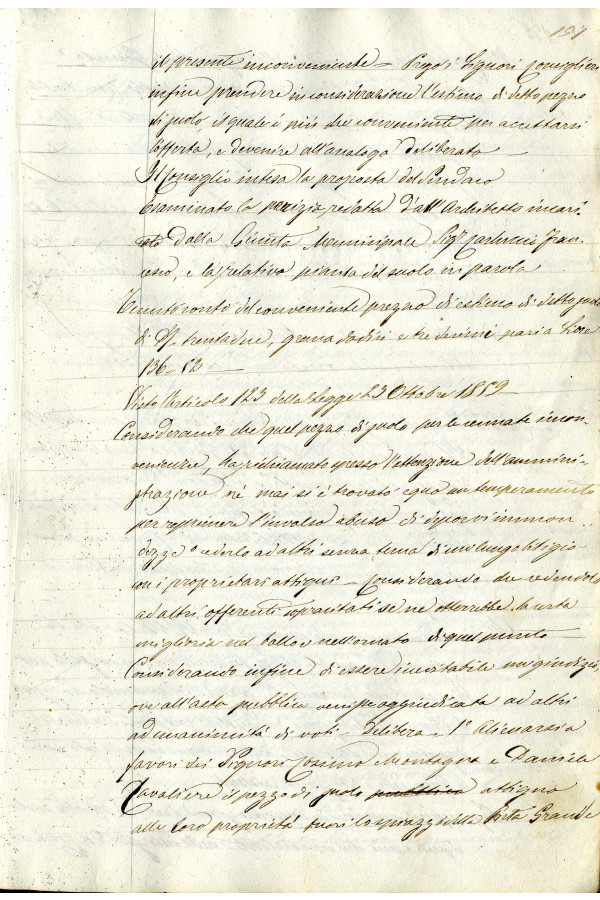 157
il presente inconveniente – Prego i Signori Consiglieri
infine prendere in considerazione l'estimo di detto pezzo
di suolo, il quale è più che conveniente per accettarsi
l'offerta, e devenire all'analogo deliberato
Il Consiglio intesa la proposta del Sindaco
Esaminato la perizia redatta dall'Architetto incari-
cato dalla Giunta Municipale Sigr Carlucci Fran-
cesco, e la relativa pianta del suolo in parola
Tenuto conto del conveniente prezzo di estimo di detto suolo
di Dti trentadue, grana dodici e tre decimi pari a Lire
136=52 –
Visto l'articolo 123 della legge 23 Ottobre 1859
Considerando che quel pezzo di suolo per le cennate incon-
venienze, ha richiamato spesso l'attenzione dell'ammini-
strazione nè mai si è trovato equo un temperamento
per reprimere l'invalso abuso di deporvi immon-
dezze o cederlo ad altri senza tema di un lungo litigio
con i proprietari attigui – Considerando che cedendolo
ad altri offerenti sopracitati se ne otterrebbe la certa
miglioria nel bello e nell'ornato di quel punto –
Considerando infine di essere inevitabile un giudizio,
ove all'asta pubblica venisse aggiudicata ad altri
ad unanimità di voti – delibera – 1° Alienarsi a
favori dei Signori Cosimo Montagna e Daniele
Cavaliere il pezzo di suolo pubblico attiguo
alle loro proprietà fuori lo spiazzo della Porta Grande